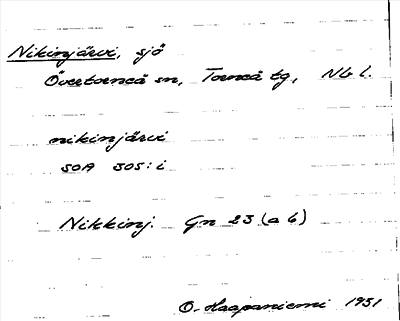 Nikinjärvi, sjö
Övertorneå sn, Torneå tg, Nb l.
nikinjärvi
SOA 305: i
Nikkinj. Gn 23 (a b)
O. Haapaniemi 1931